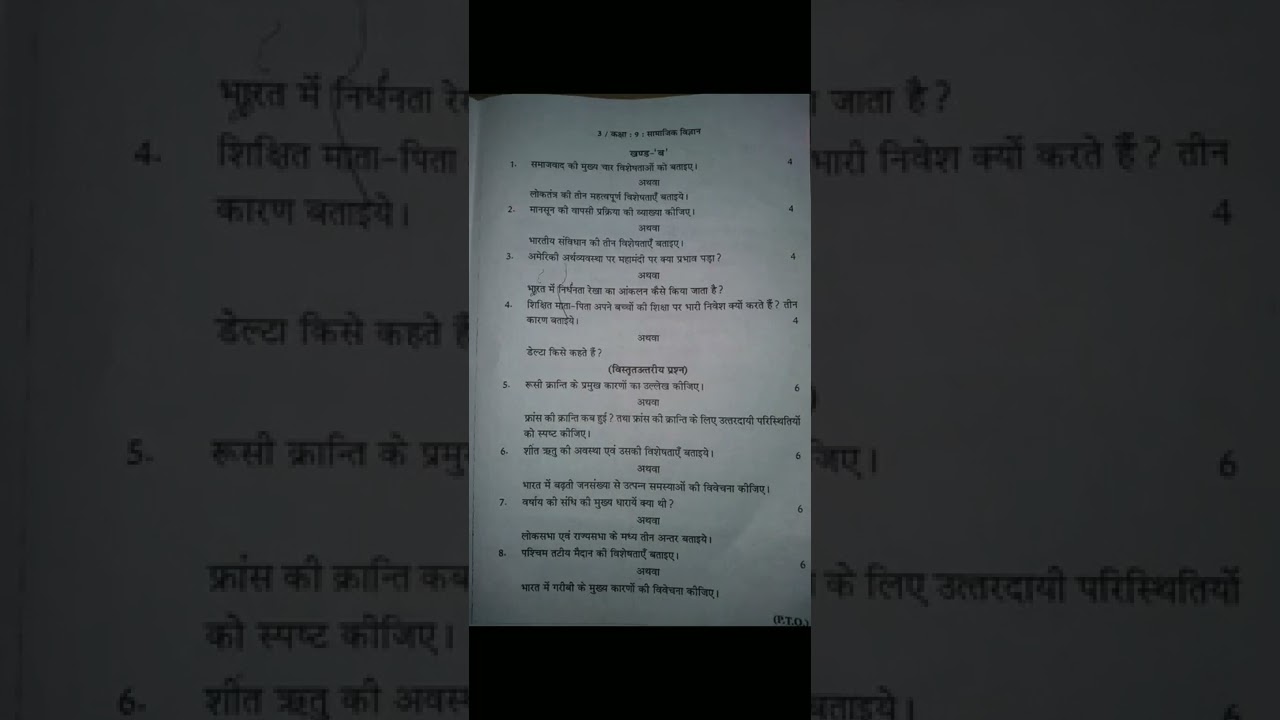 3 / कक्षा : 9 : सामाजिक विज्ञान
खण्ड-'ब'
1. समाजवाद की मुख्य चार विशेषताओं को बताइए। 4
अथवा
लोकतंत्र की तीन महत्वपूर्ण विशेषताएँ बताइये।
2. मानसून की वापसी प्रक्रिया की व्याख्या कीजिए। 4
अथवा
भारतीय संविधान की तीन विशेषताएँ बताइए।
3. अमेरिकी अर्थव्यवस्था पर महामंदी पर क्या प्रभाव पड़ा? 4
अथवा
भारत में निर्धनता रेखा का आंकलन कैसे किया जाता है?
4. शिक्षित माता-पिता अपने बच्चों की शिक्षा पर भारी निवेश क्यों करते हैं? तीन
कारण बताइये। 4
अथवा
डेल्टा किसे कहते हैं?
(विस्तृतउत्तरीय प्रश्न)
5. रूसी क्रान्ति के प्रमुख कारणों का उल्लेख कीजिए। 6
अथवा
फ्रांस की क्रान्ति कब हुई? तथा फ्रांस की क्रान्ति के लिए उत्तरदायी परिस्थितियों
को स्पष्ट कीजिए।
6. शीत ऋतु की अवस्था एवं उसकी विशेषताएँ बताइये। 6
अथवा
भारत में बढ़ती जनसंख्या से उत्पन्न समस्याओं की विवेचना कीजिए।
7. वर्षाय की संधि की मुख्य धारायें क्या थी? 6
अथवा
लोकसभा एवं राज्यसभा के मध्य तीन अन्तर बताइये।
8. पश्चिम तटीय मैदान की विशेषताएँ बताइए। 6
अथवा
भारत में गरीबी के मुख्य कारणों की विवेचना कीजिए।
(P.T.O.)